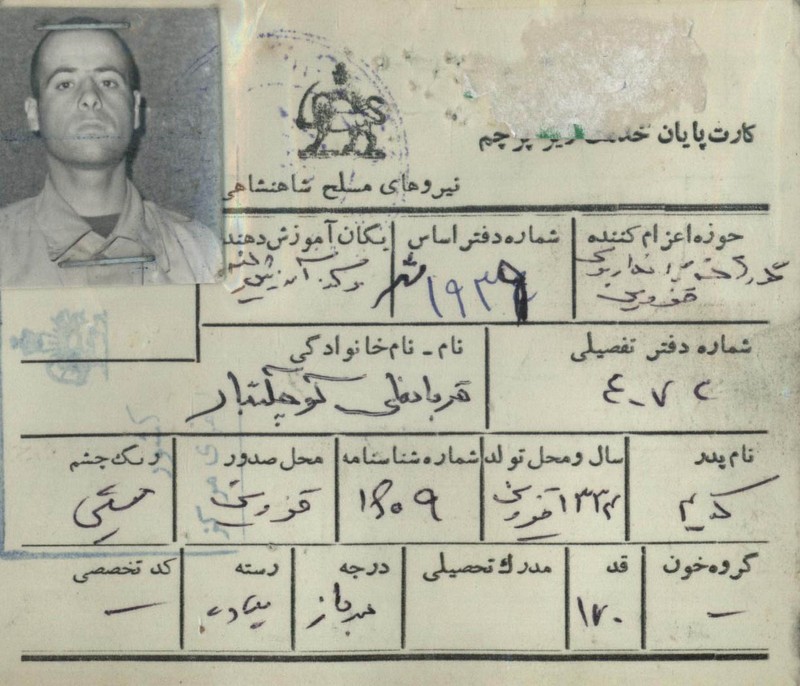 کارت پایان خدمت زیر پرچم
نیروهای مسلح شاهنشاهی
حوزه اعزام کننده
شماره دفتر اساس
یگان آموزش دهنده
قزوین
۱۹۳۹
مرکز آموزش
شماره دفتر تفصیلی
نام - نام خانوادگی
قربانعلی
نام پدر
سال و محل تولد
شماره شناسنامه
محل صدور
رنگ چشم
کریم
۱۳۳۴ قزوین
قزوین
مشکی
گروه خون
قد
مدرک تحصیلی
درجه
رسته
کد تخصصی
—
۱۷۰
سرباز
پیاده
—